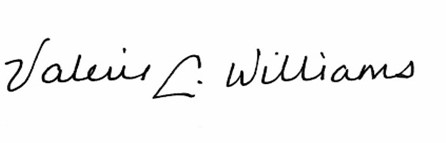 Valerie L. Williams